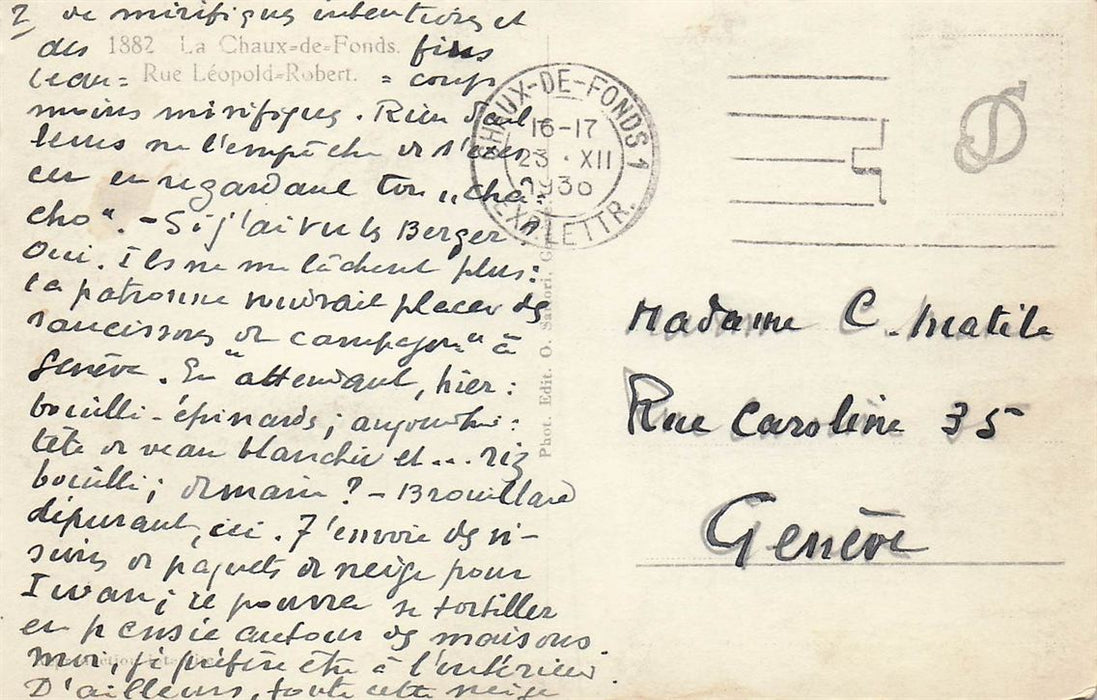 2 de mirifiques intentions et
des 1882 La Chaux-de-Fonds. fins
beau= Rue Léopold-Robert. = coup
moins mirifiques. Rien d'ail
leurs ne l'empêche de s'exer
cer en regardant ton „cha-
cho". - Si j'ai vu les Berger?
Oui. Ils ne me lâchent plus:
la patronne voudrait placer des
saucissons de "campagne" à
Genève. En attendant, hier:
bouilli-épinards; aujourd'hui:
tête de veau blanchie et... riz
bouilli; demain? - Brouillard
épurant, ici. J'envoie des
de paquets de neige pour
Iwan; il pourra se tortiller
en pensée autour des maisons.
Moi, je préfère être à l'intérieur.
D'ailleurs, toute cette neige
CHAUX-DE-FONDS 1
16-17
23·XII
1936
EXP. LETTR.
Phot. Edit. O. Sartori, G
Madame C. Matile
Rue Caroline 35
Genève